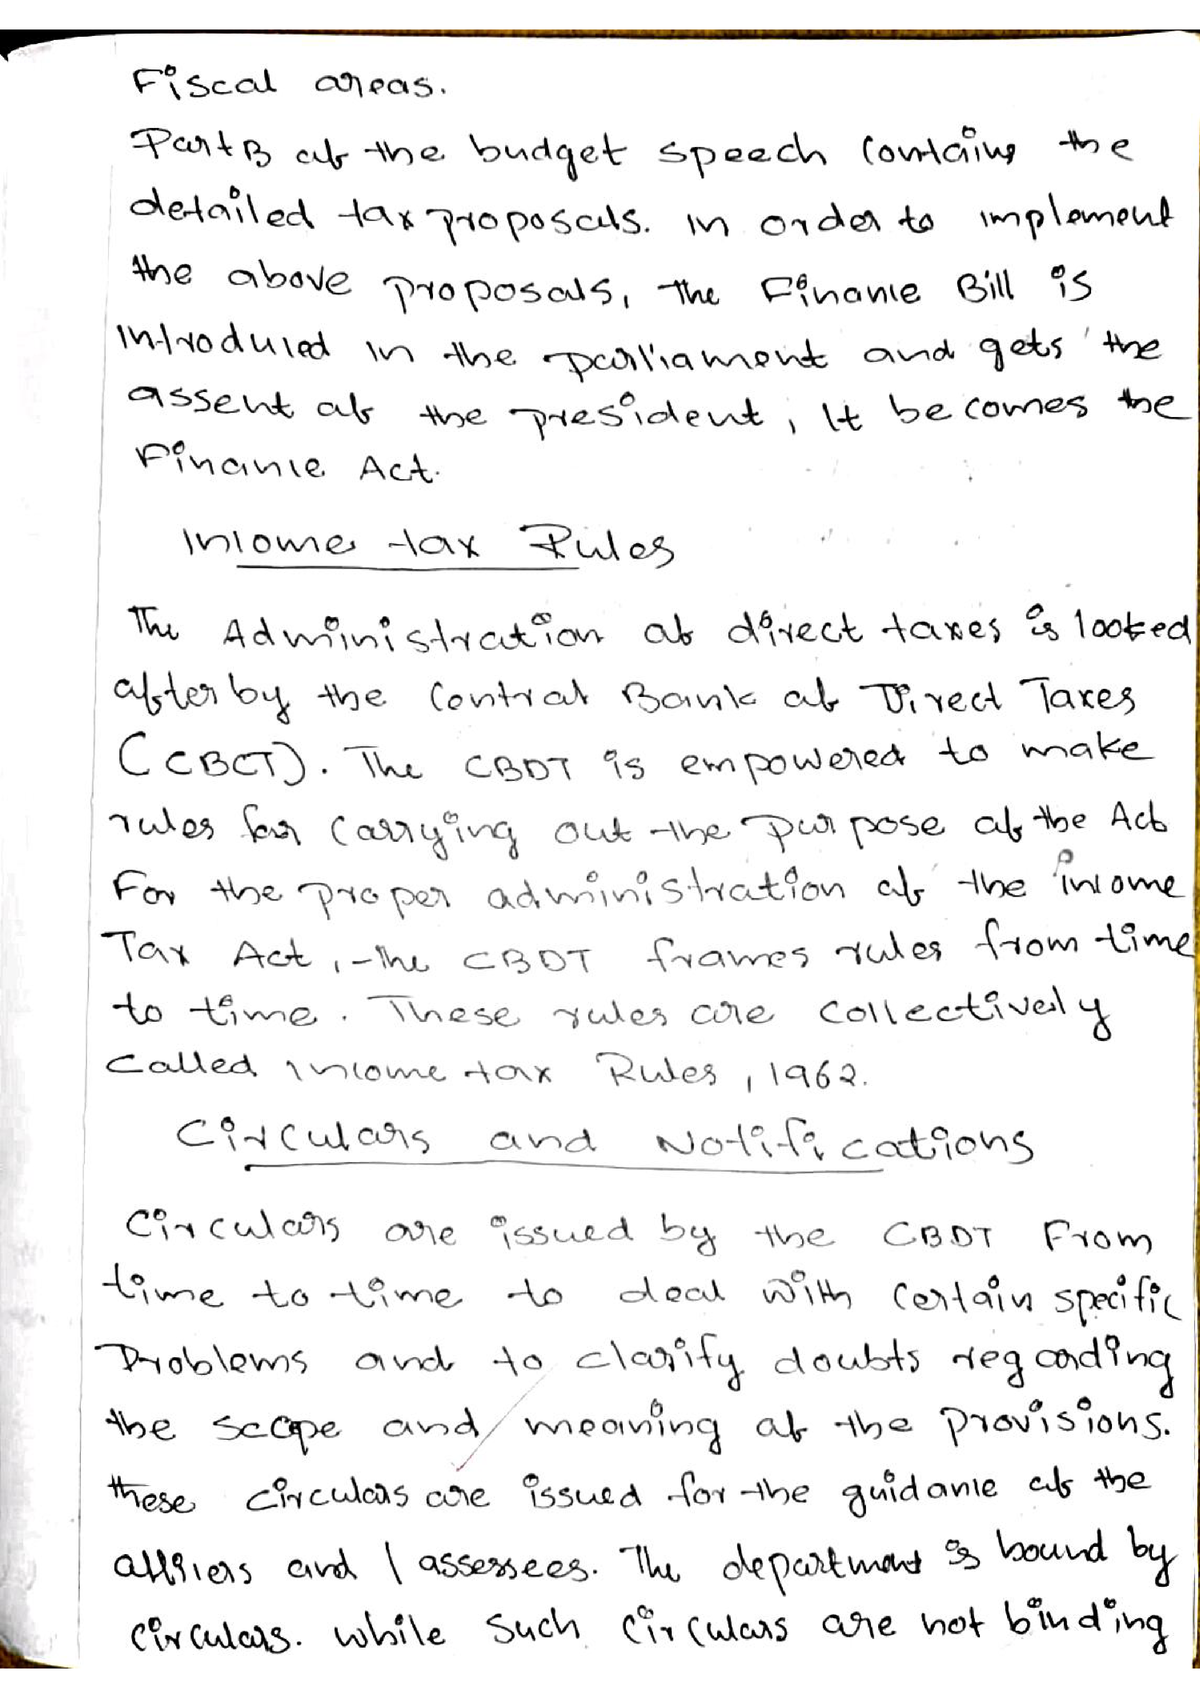 Fiscal areas.
Part B of the budget speech contains the
detailed tax proposals. In order to implement
the above proposals, the Finance Bill is
introduced in the parliament and gets the
assent of the president, It becomes the
Finance Act.
Income tax Rules
The Administration of direct taxes is looked
after by the Central Bank of Direct Taxes
(CBCT). The CBDT is empowered to make
rules for carrying out the purpose of the Act
For the proper administration of the income
Tax Act, the CBDT frames rules from time
to time. These rules are collectively
called income tax Rules, 1962.
Circulars and Notifications
Circulars are issued by the CBDT From
time to time to deal with certain specific
Problems and to clarify doubts regarding
the scope and meaning of the provisions.
these circulars are issued for the guidance of the
officers and / assessees. The department is bound by
circulars. while such circulars are not binding